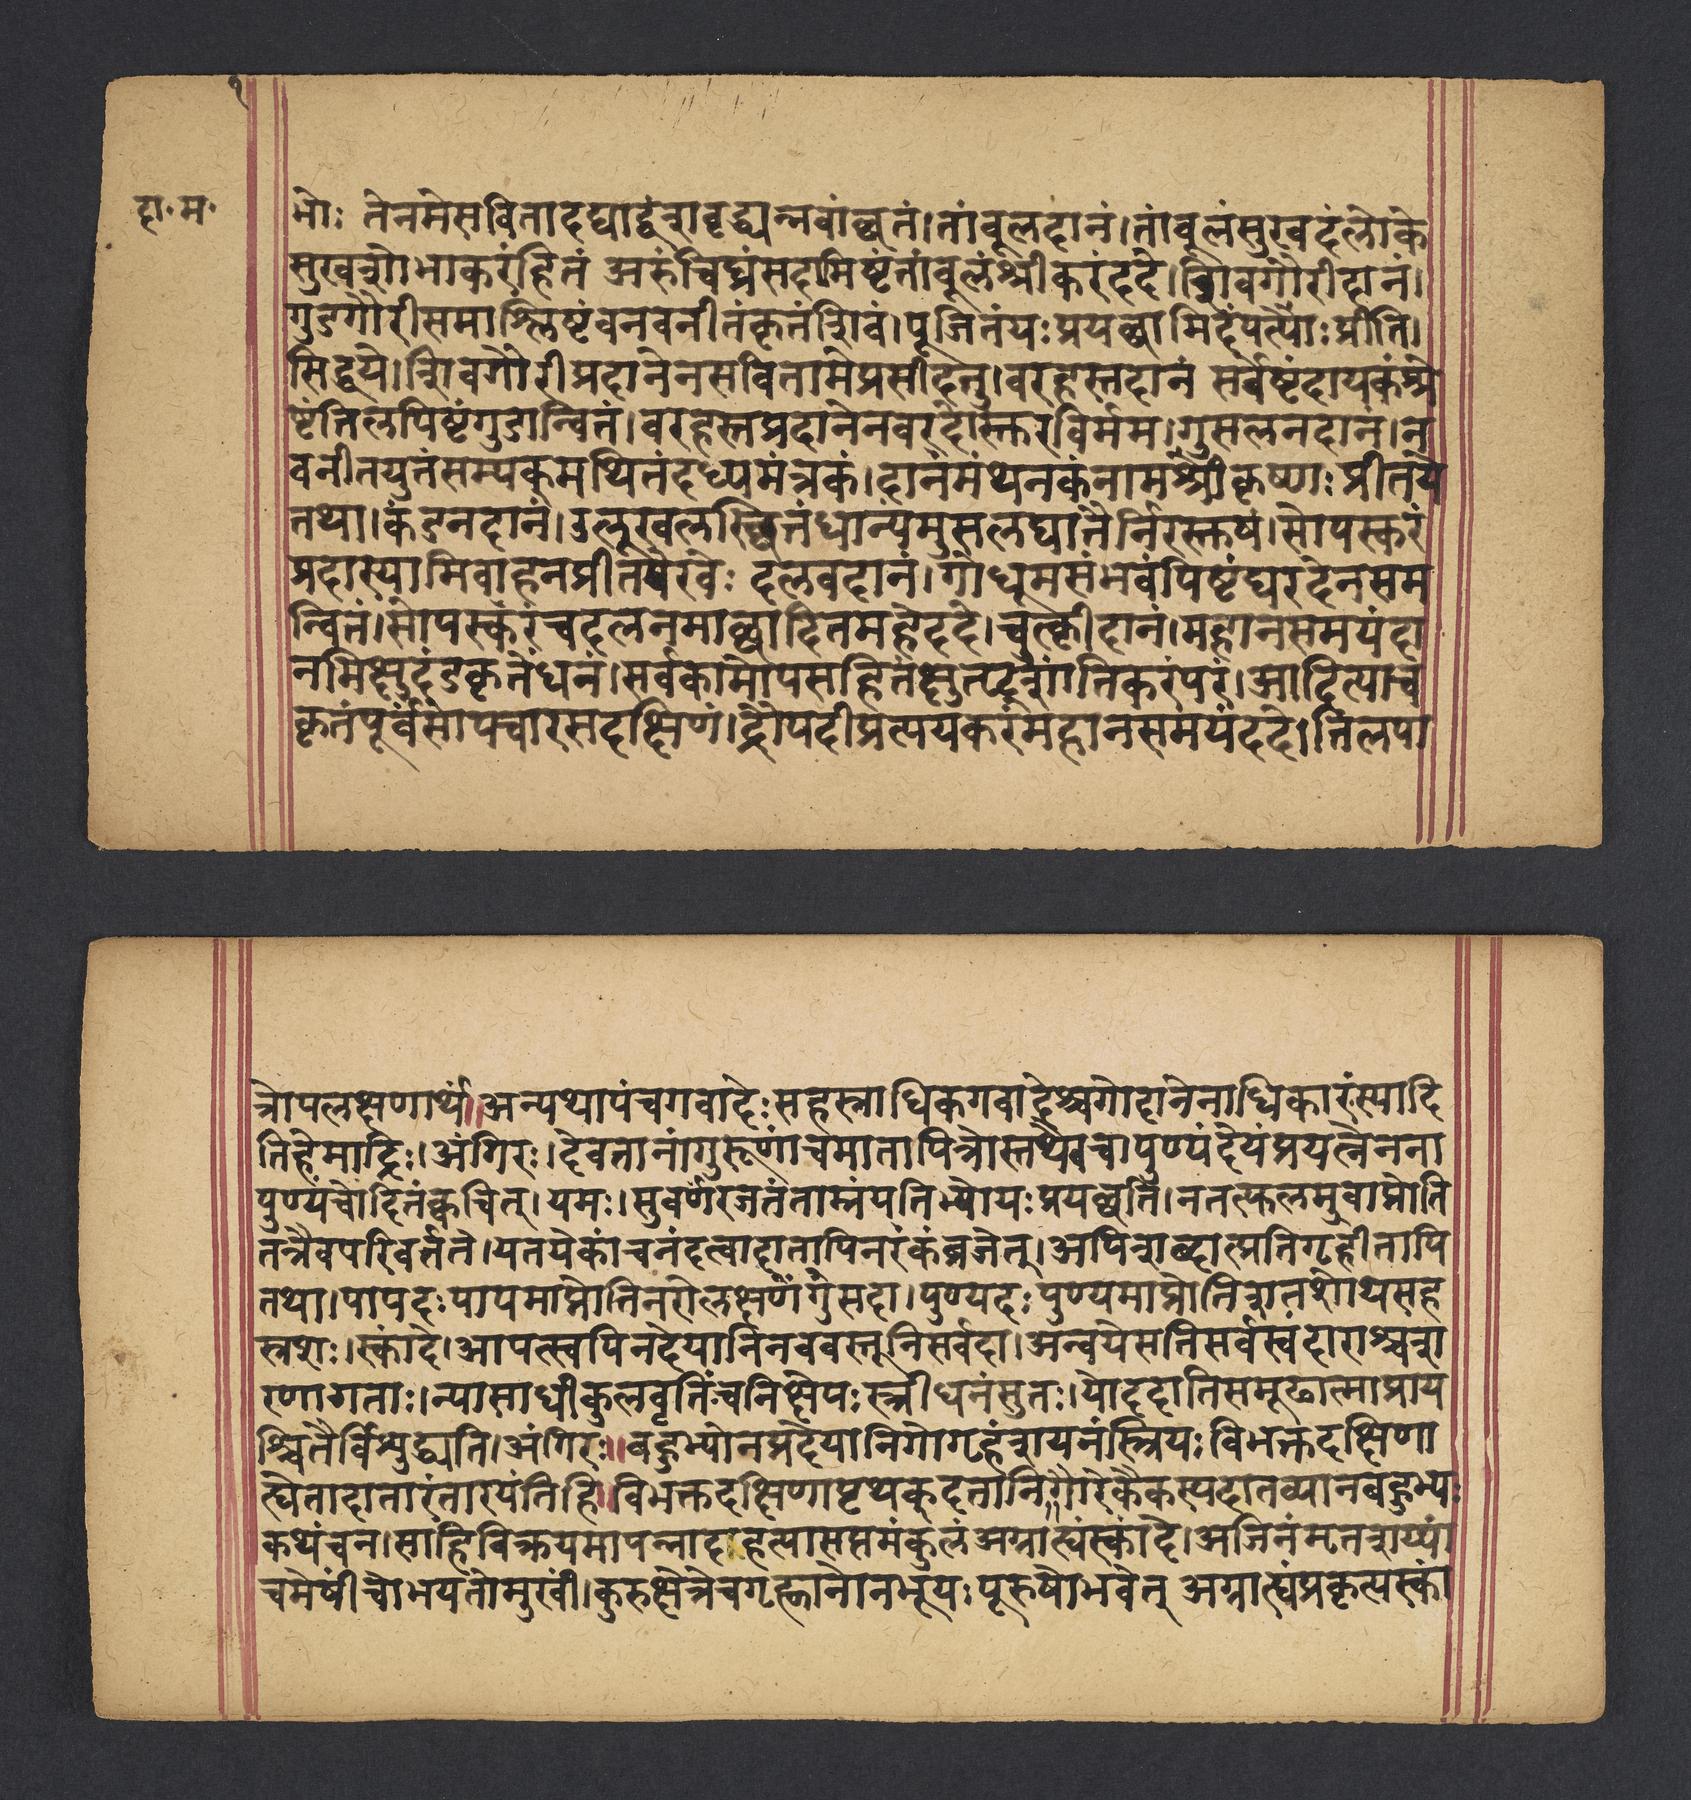 १
दा॰म॰
भोः तेनमेसविताद्याद्वंशवृद्ध्यन्नवांछितं।तांबूलदानं।तांबूलंसुखदंलोके
सुखशोभाकरंहितं अरुचिघ्नंसदामिष्टंतांबूलंश्रीकरंददे।शिवगौरीदानं।
गुडगौरीसमाश्लिष्टंवनवनीतंकृतंशिवं।पूजितंयःप्रयछामिदंपत्यैाःप्रीति।
सिद्धये।शिवगौरीप्रदानेनसवितामेप्रसीदतु।वरहस्तदानं सर्वेष्टंदायकंश्रे
ष्टंतिलपिष्टंगुडान्वितं।वरहस्तप्रदानेनवरदोस्तुरविर्मम।गुसलनदानं।न
वनीतयुतंसम्यक्मथितंदध्यमंत्रकं।दानंमंथेनकंनामश्रीकृष्णःप्रीतये
तथा।कंडनदानं।उलूखलस्छितंधान्यंमुसलघातैर्निरस्तषं।सोपस्करं
प्रदास्यामिवाहनप्रीतयेरवेः दलवदानं।गोधूमसंभवंपिष्टंघरदेनसम
न्वितं।सोपस्करंचदलनमाछादितमहेददे।चुल्कीदानं।महानसमयंदा
नमिक्षुदंडकृतेंधनं।सर्वकामोपसहितंक्षुत्तृट्शांतिकरंपरं।आदित्याच
कृतंपूर्वंसोपचारसदक्षिणं।द्रौपदीप्रत्ययकरंमहानसमयंददे।तिलपा
त्रोपलक्षणार्थं॥अन्यथापंचगवादेःसहस्त्राधिकगवादेश्चगोदानेनाधिकारंस्यादि
तिहेमाद्रिः।अंगिरः।देवतानांगुरूणांचमातापित्रोस्तथैवच।पुण्यंदेयंप्रयत्नेनना
पुण्यंचोदितंक्वचित्।यमः।सुवर्णंरजतंताम्रंपतिभ्योयःप्रयछति।नतत्फलमुवाप्नोति
तत्रैवपरिवर्त्तते।यतयेकांचनंदत्वादातापिनरंकंव्रजेत्।अपिशब्दात्प्रतिगृहीतापि
तथा।पापदःपापमाप्नोतिनरोलक्षणंगुंसदा।पुण्यदःपुण्यमाप्नोतिशतशोथसह
स्त्रशः।स्कांदे।आपत्स्वपिनदेयानिनववस्तूनिसर्वदा।अन्वयेसतिसर्वस्वंदाराश्चशर
णागताः।न्यासाधीकुलवृत्तिंचनिक्षेपःस्त्रीधनंसुतः।योददातिसमूढात्माप्राय
श्चितैर्विशुद्ध्यति।अंगिरः॥बहुभ्योनप्रदेयानिगोगृहंशयनंस्त्रियःविभक्तदक्षिणा
ह्येतादातारंतारयंतिहि॥विभक्तदक्षिणापृथक्दत्तानिगौरेकैकस्यदातव्यानबहुभ्यः
कथंचन।साहिविक्रयमापन्नादहत्यासप्तमंकुलंअग्राह्यंस्कांदे।अजिनंमृतशय्यां
चमेषींचोभयतोमुखीं।कुरुक्षेत्रेचगृह्णानोनभूयःपूरुषोभवेत् अग्राह्यंप्रकृत्यस्कां